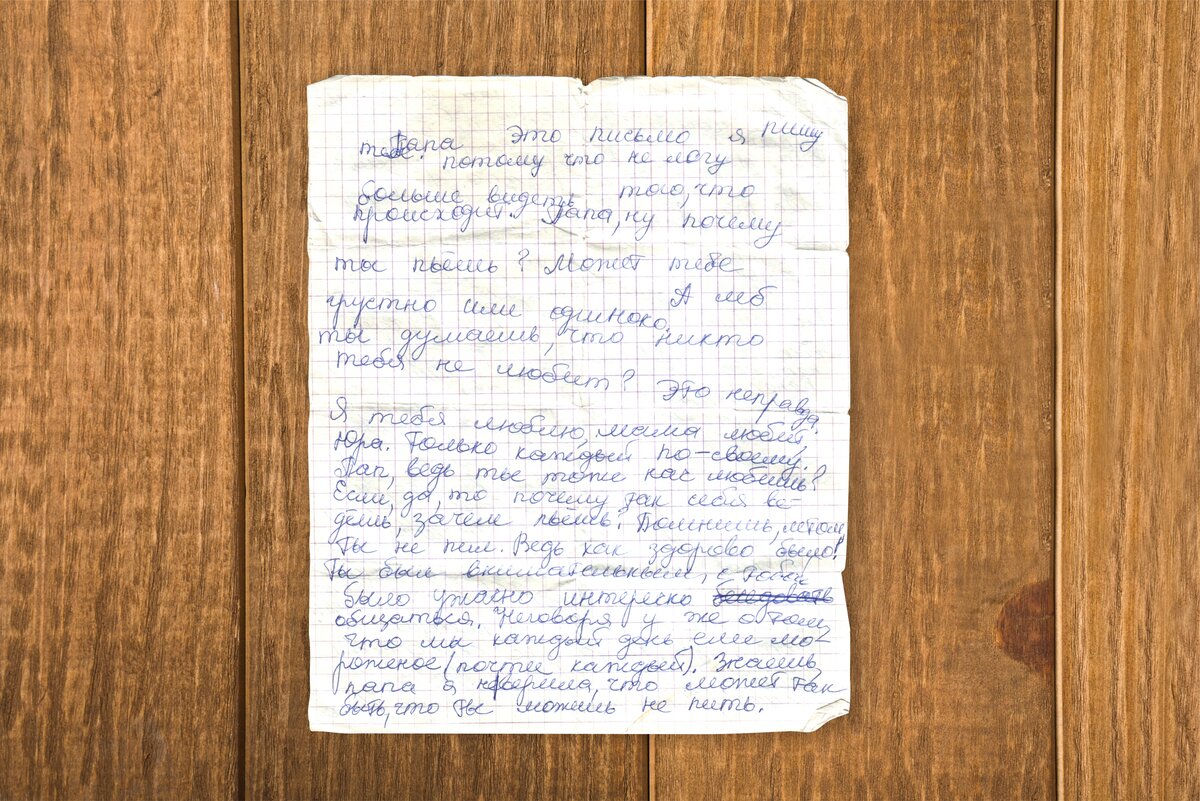 Папа Это письмо я пишу
тебе. потому что не могу
больше видеть того, что
происходит. Папа, ну почему
ты пьёшь? Может тебе
грустно или одиноко. А мб
ты думаешь, что никто
тебя не любит? Это неправда.
Я тебя люблю, мама любит,
Юра. Только каждый по-своему.
Пап, ведь ты тоже нас любишь?
Если, да, то почему так себя ве-
дёшь, зачем пьёшь? Помнишь, летом
ты не пил. Ведь как здорово было!
Ты был внимательным, с тобой
было ужасно интересно беседовать
общаться. Неговоря у же о том,
что мы каждый день ели мо-
роженое (почти каждый). Знаешь,
папа я не верила, что может так
быть, что ты можешь не пить.